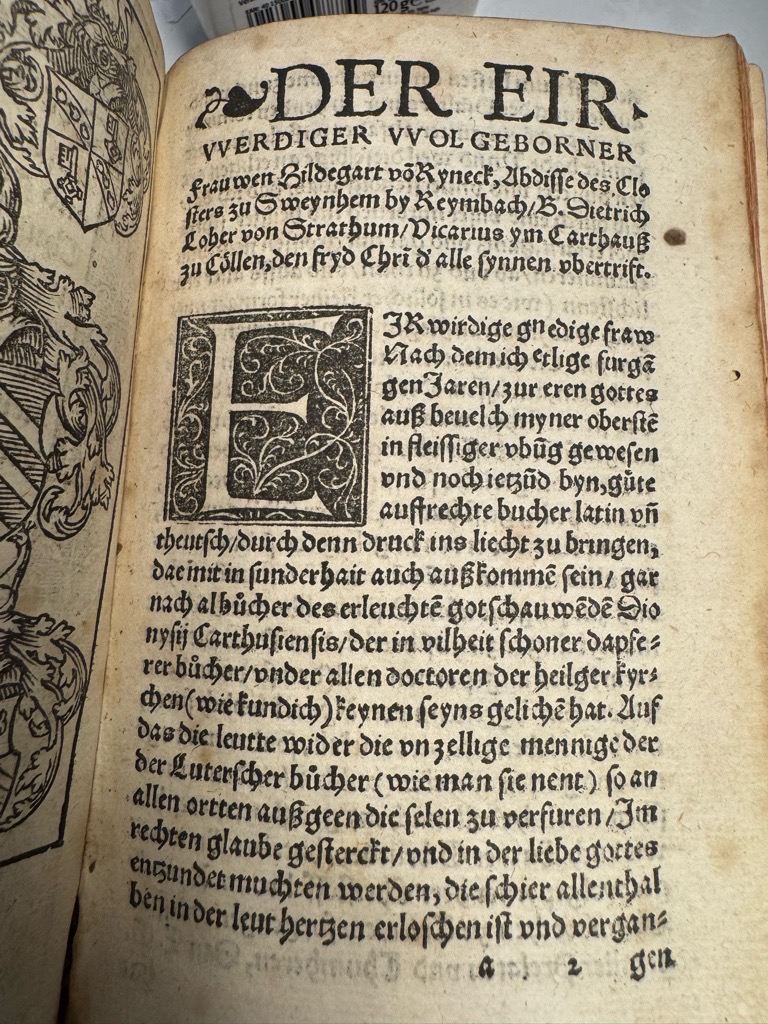 120 g
DER EIR
VVERDIGER VVOLGEBORNER
Frauwen Hildegart võ Ryneck, Abdisse des Clo
sters zu Sweynhem by Reymbach/B. Dietrich
Loher von Strathum/Vicarius ym Carthauß
zu Cöllen, den fryd Chri d̄ alle synnen vbertrift.
EJR wirdige gnedige fraw
Nach dem ich etlige furgā
gen Jaren/zur eren gottes
auß beuelch myner oberstē
in fleissiger vbūg gewesen
vnd noch ietzūd byn, gůte
auffrechte bucher latin vn̄
theutsch/durch denn druck ins liecht zu bringen,
dae mit in sunderhait auch außkommē sein/ gar
nach al bůcher des erleuchtē gotschauwēdē Dio
nysij Carthusiensis/der in vilheit schoner dapfe⸗
rer bůcher/vnder allen doctoren der heilger kyr⸗
chen (wie kundich) keynen seyns gelichē hat. Auf
das die leutte wider die vnzellige mennige der
der Luterscher bůcher (wie man sie nent) so an
allen ortten außgeen die selen zu verfuren/Jm
rechten glaube gesterckt/vnd in der liebe gottes
entzundet muchten werden, die schier allenthal
ben in der leut hertzen erloschen ist vnd vergan⸗
a 2 gen